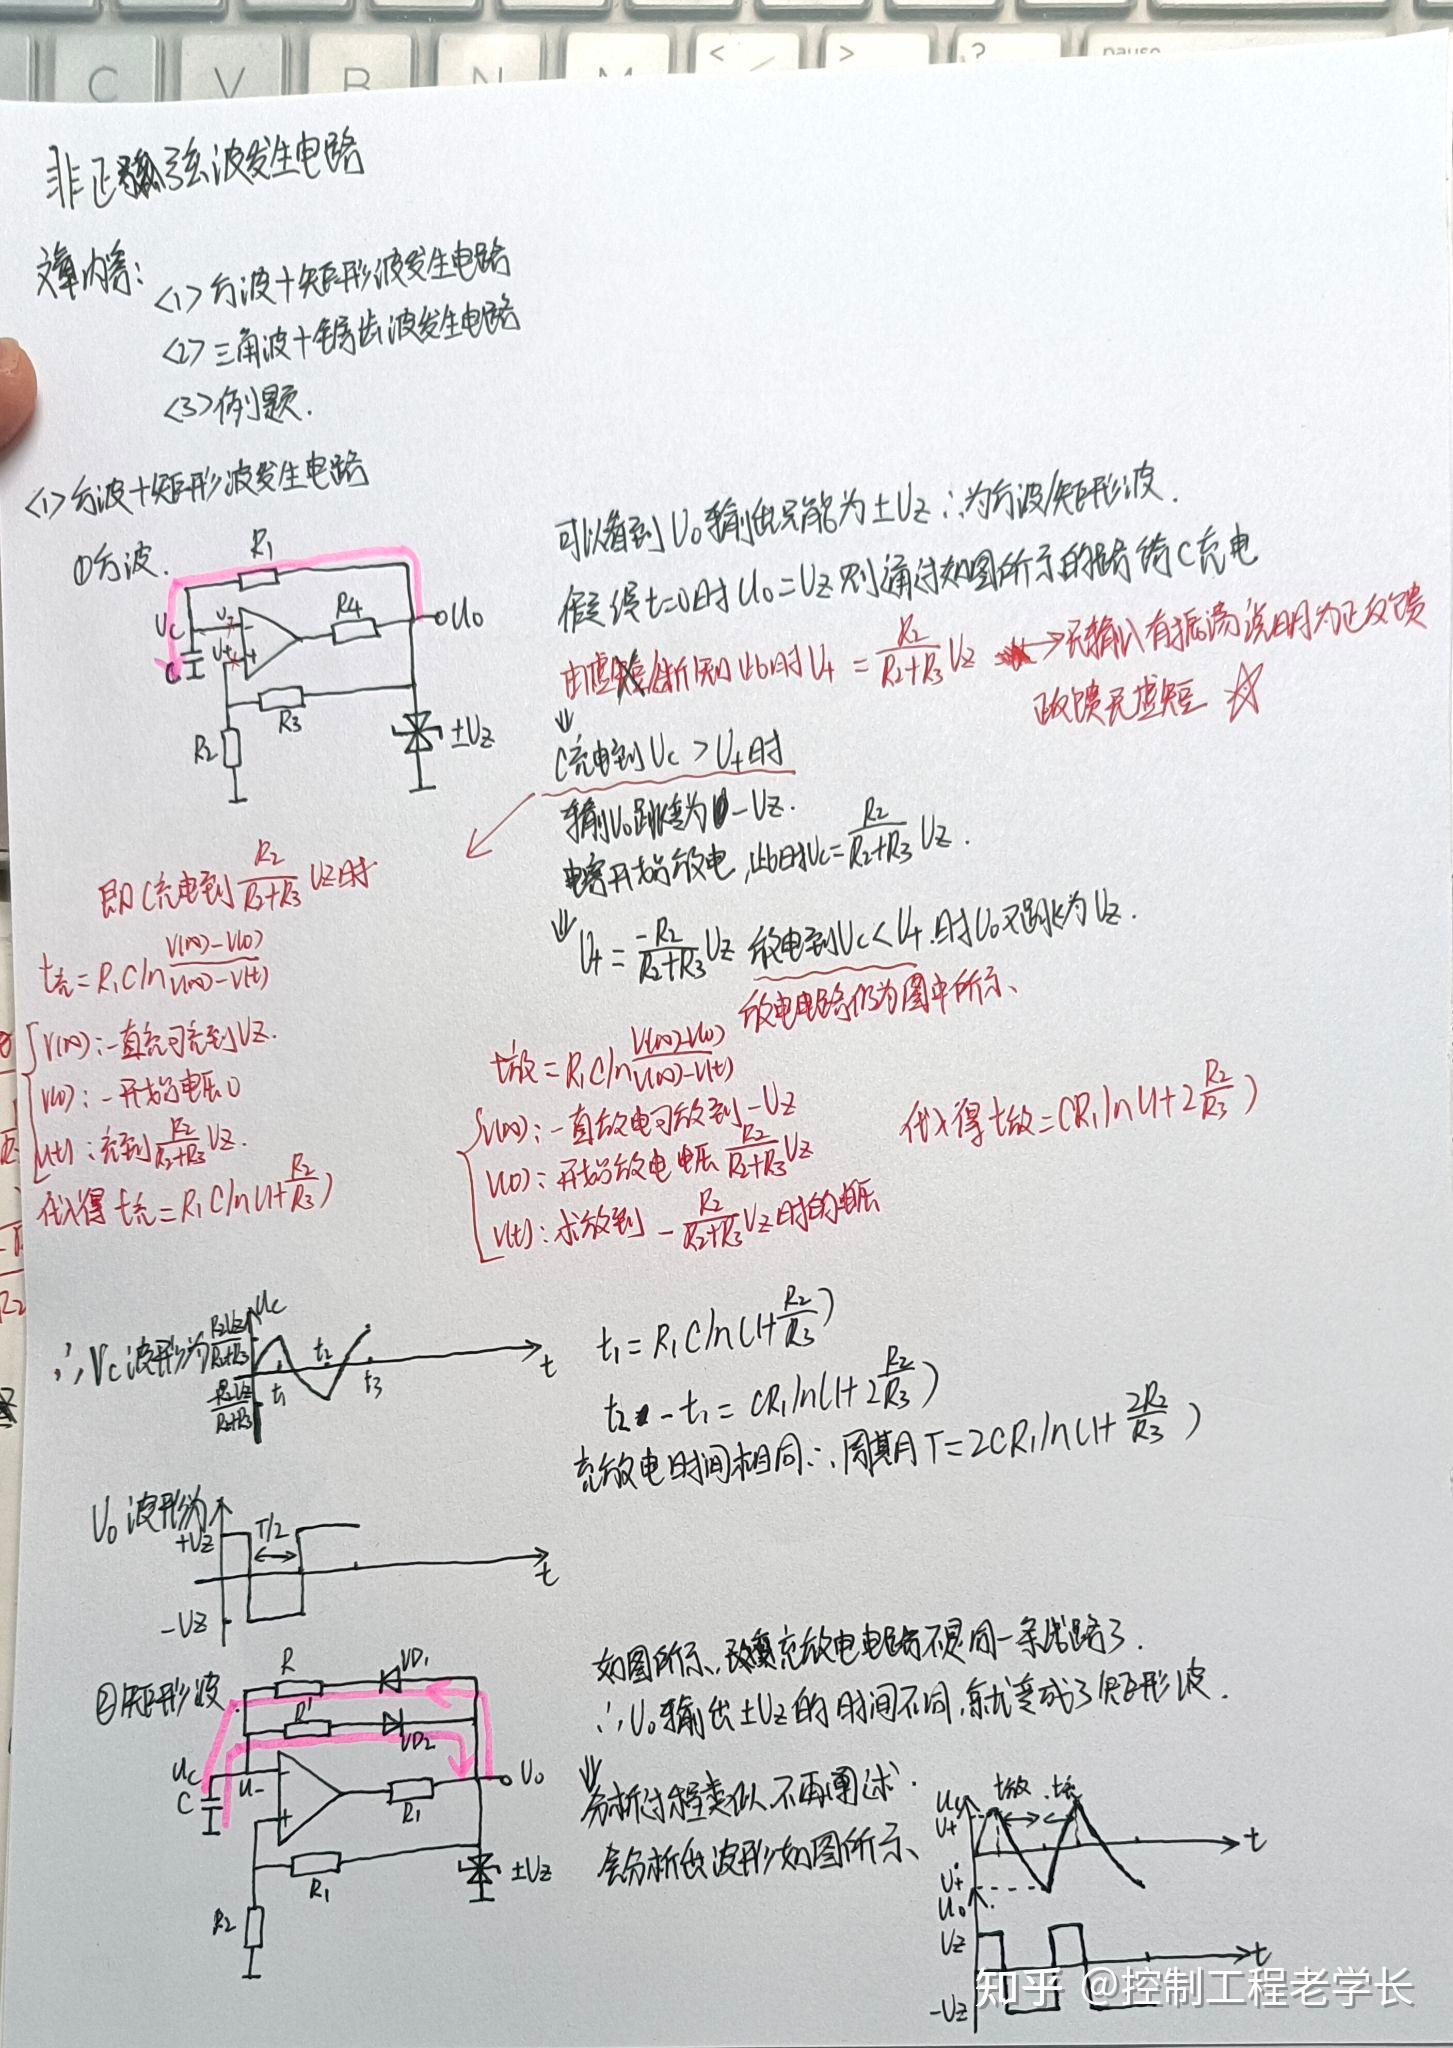 C V B N M < > ? pause
非正弦波发生电路
文章内容:
<1>方波+矩形波发生电路
<2>三角波+锯齿波发生电路
<3>例题.
<1>方波+矩形波发生电路
①方波.
R1
Uc
U-
U+
C
R4
U0
R3
R2
±Uz
可以看到U0输出只能为±Uz∴为方波/矩形波.
假设t=0时U0=Uz则通过如图所示的路给C充电
由虚断则此时U+=R2/(R2+R3)Uz →无输入有振荡说明为正反馈
正反馈无虚短 ☆
⇓
C充电到Uc>U+时
输出U0跳变为-Uz.
电容开始放电,此时Uc=R2/(R2+R3)Uz.
⇓ U+=-R2/(R2+R3)Uz 放电到Uc<U+.时U0又跳变为Uz.
放电电路仍为图中所示、
即C充电到R2/(R2+R3)Uz时
t充=R1Cln(V(∞)-V(0))/(V(∞)-V(t))
V(∞):一直充可充到Uz.
V(0):一开始电压0
V(t):充到R2/(R2+R3)Uz.
代入得 t充=R1Cln(1+R2/R3)
t放=R1Cln(V(∞)-V(0))/(V(∞)-V(t))
V(∞):一直放电可放到-Uz
V(0):开始放电电压R2/(R2+R3)Uz
V(t):求放到-R2/(R2+R3)Uz时的电压
代入得t放=CR1ln(1+2R2/R3)
∴Vc波形为
Uc
R2Uz/(R2+R3)
-R2Uz/(R2+R3)
t1
t2
t3
t
t1=R1Cln(1+R2/R3)
t2-t1=CR1ln(1+2R2/R3)
充放电时间相同∴周期T=2CR1ln(1+2R2/R3)
U0波形为
+Uz
T/2
t
-Uz
②矩形波.
R
VD1
R'
VD2
Uc
U-
C
R1
U0
R1
±Uz
R2
如图所示,改变充放电电路不是同一条线路了.
∴U0输出±Uz的时间不同,就变成了矩形波.
⇓
分析过程类似不再阐述.
会分析出波形如图所示、
Uc
U+
t放
t充
t
U+
U0
Uz
t
-Uz
知乎 @控制工程老学长